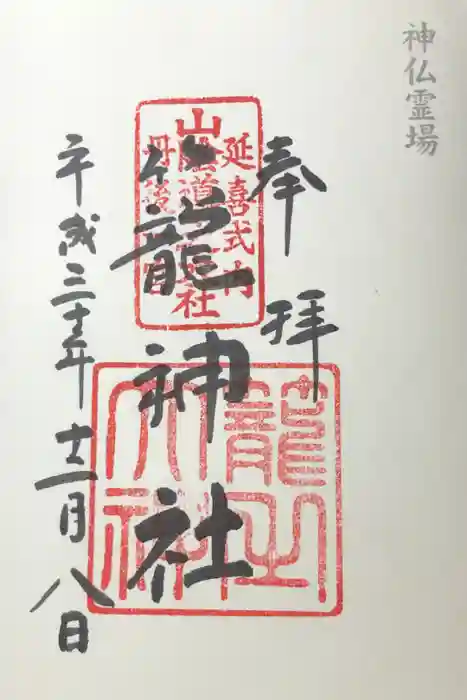 神仏霊場
奉拝
延喜式内
山陰道 社
丹後 宮
籠神社
籠之
大社
平成三十年十二月八日